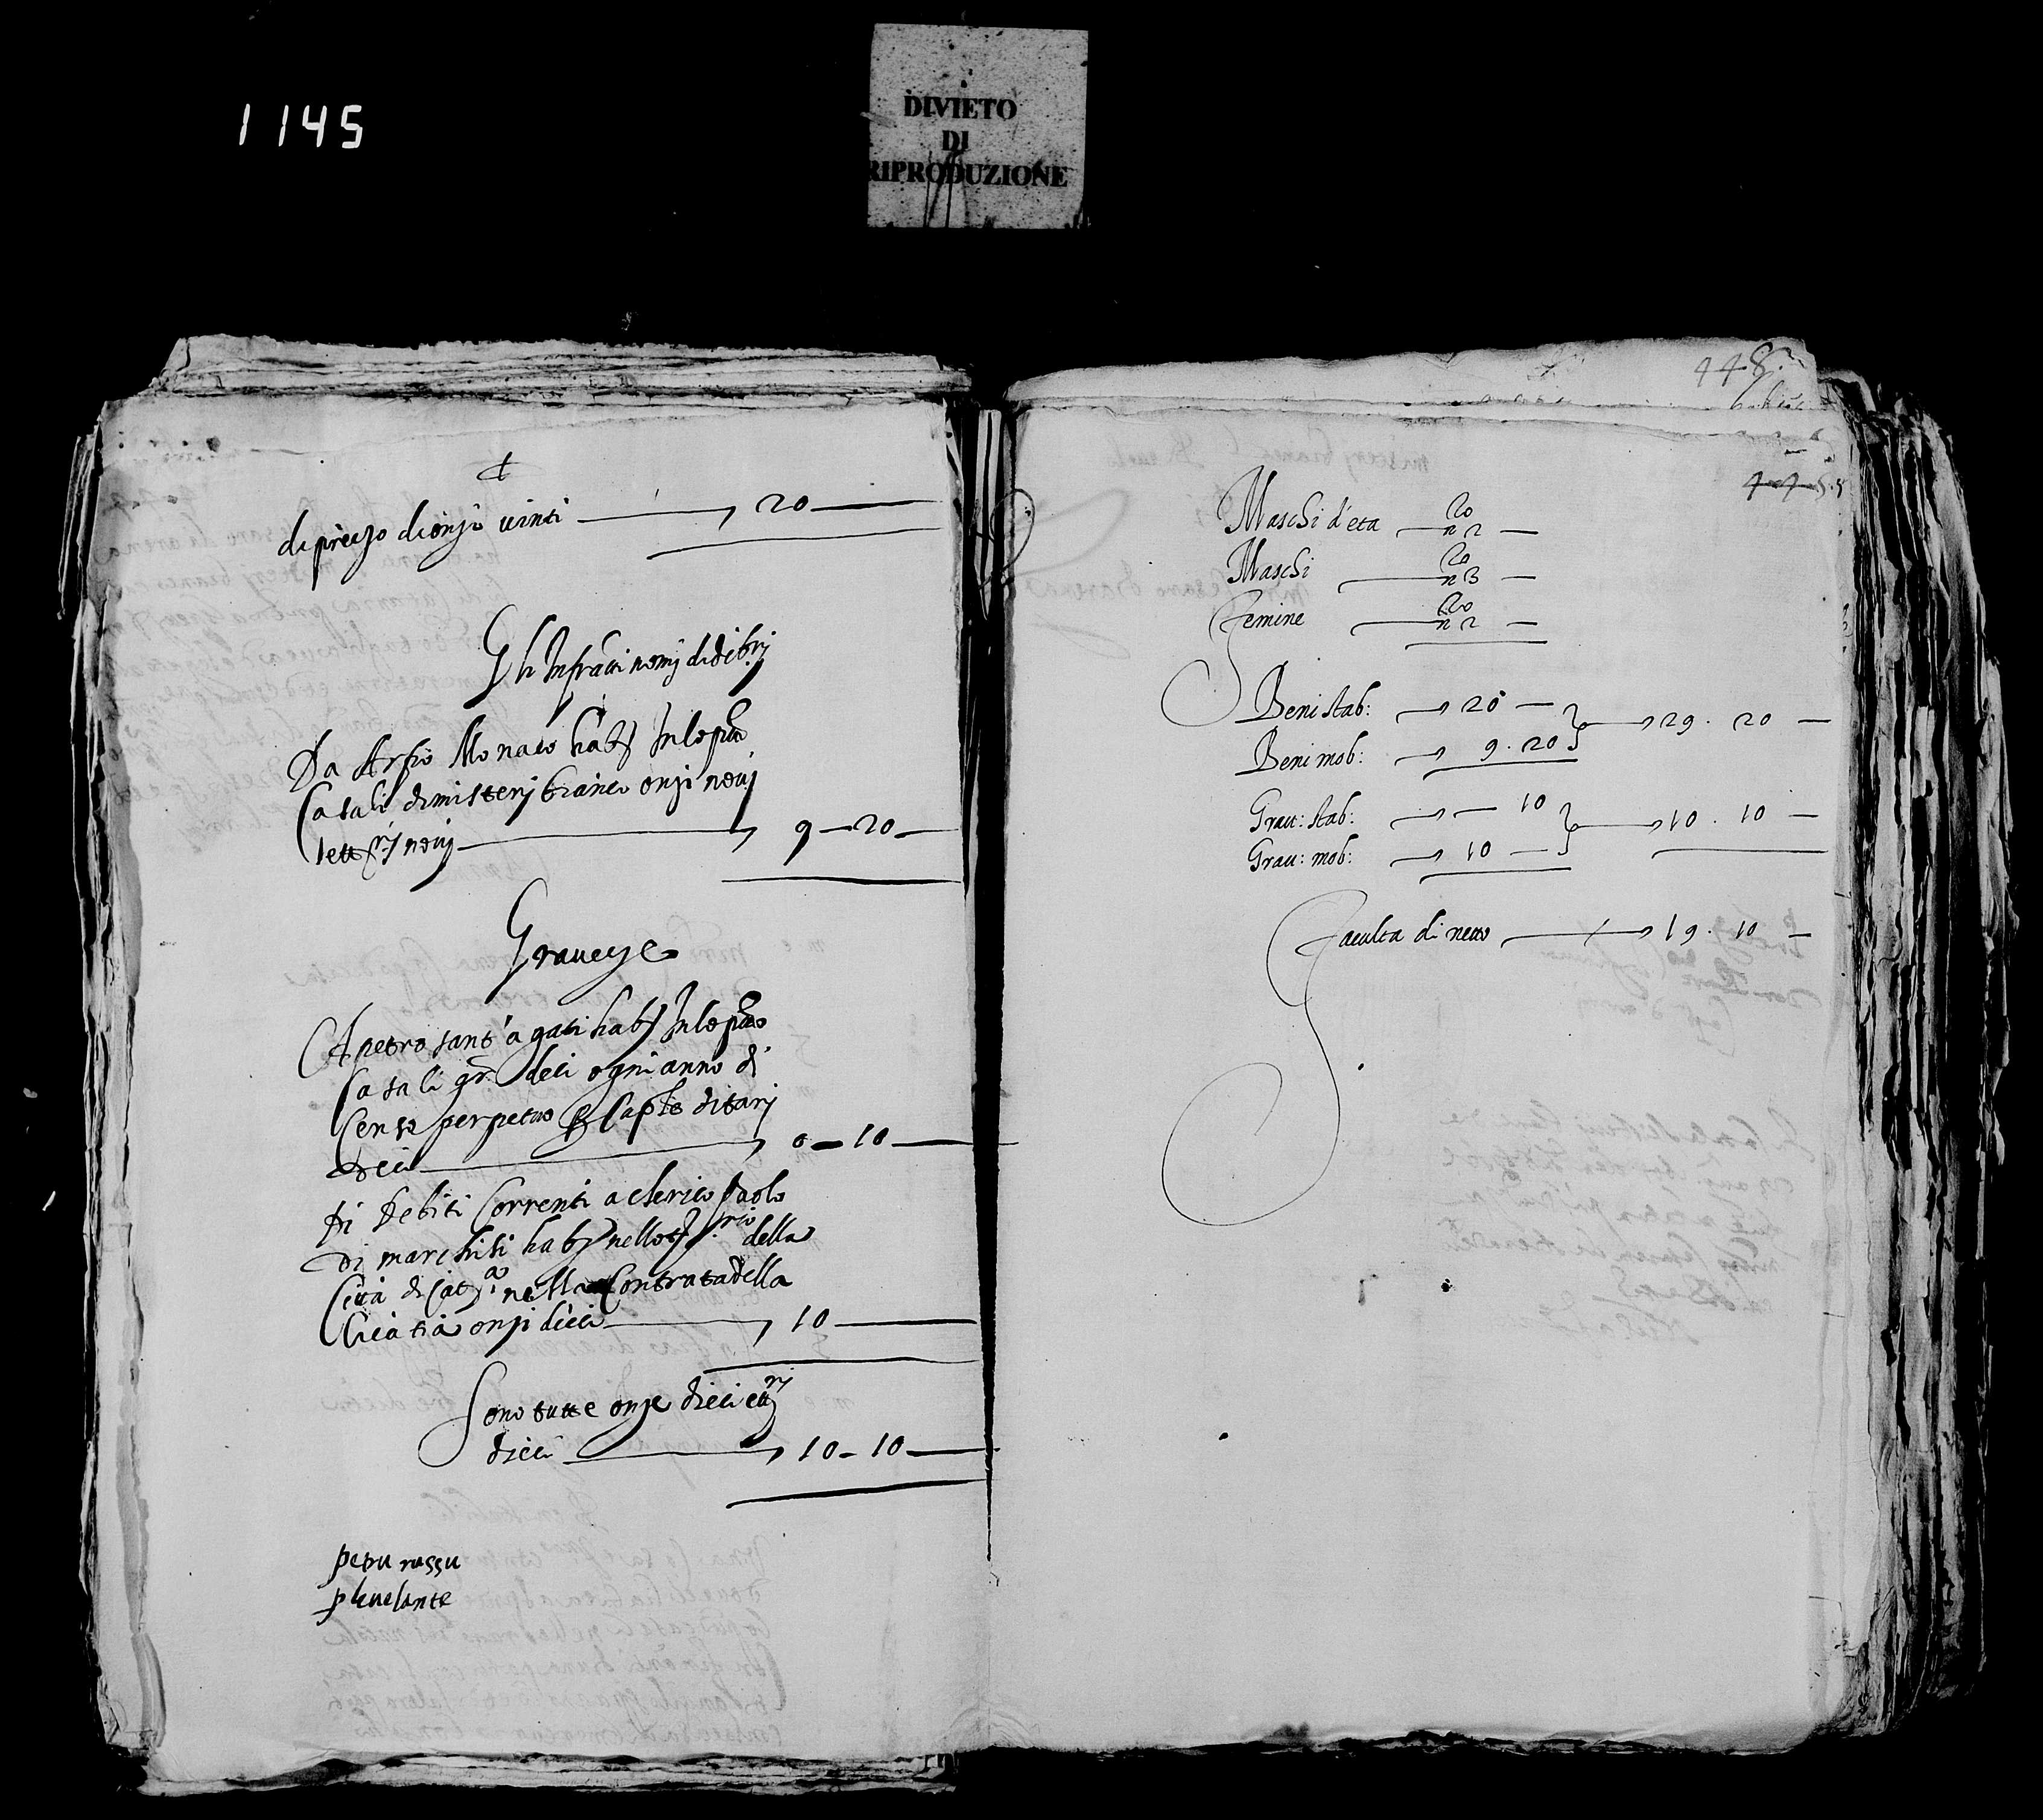 1145
DIVIETO
DI
RIPRODUZIONE
di prezzo di onzi vinti 20
Gli Infratti nomi di debri
Da Arfio Monaco habre In lo pto
Casali di misterj bianco onzi novj
e tt ri novj 9 20
Gravezze
A petro sant'agati habre In lo pto
Casali gr. deci ogni anno di
Censo perpetuo p Caple di tari
deci 0 10
Di Debiti Correnti a clerico paolo
Di marchisi habre nello della
Cità di Cat.a nella Contrata della
onzi dieci 10
Sono tutte onze dieci e tt ri
dieci 10 - 10
petru russu
p leuelante
448.
Maschi d'eta no 2
Maschi no 3
Femine no 2
Beni stab: 20
29. 20
Beni mob: 9. 20
Grau: stab: 10
10. 10
Grau: mob: 10
Faculta di netto 19. 10